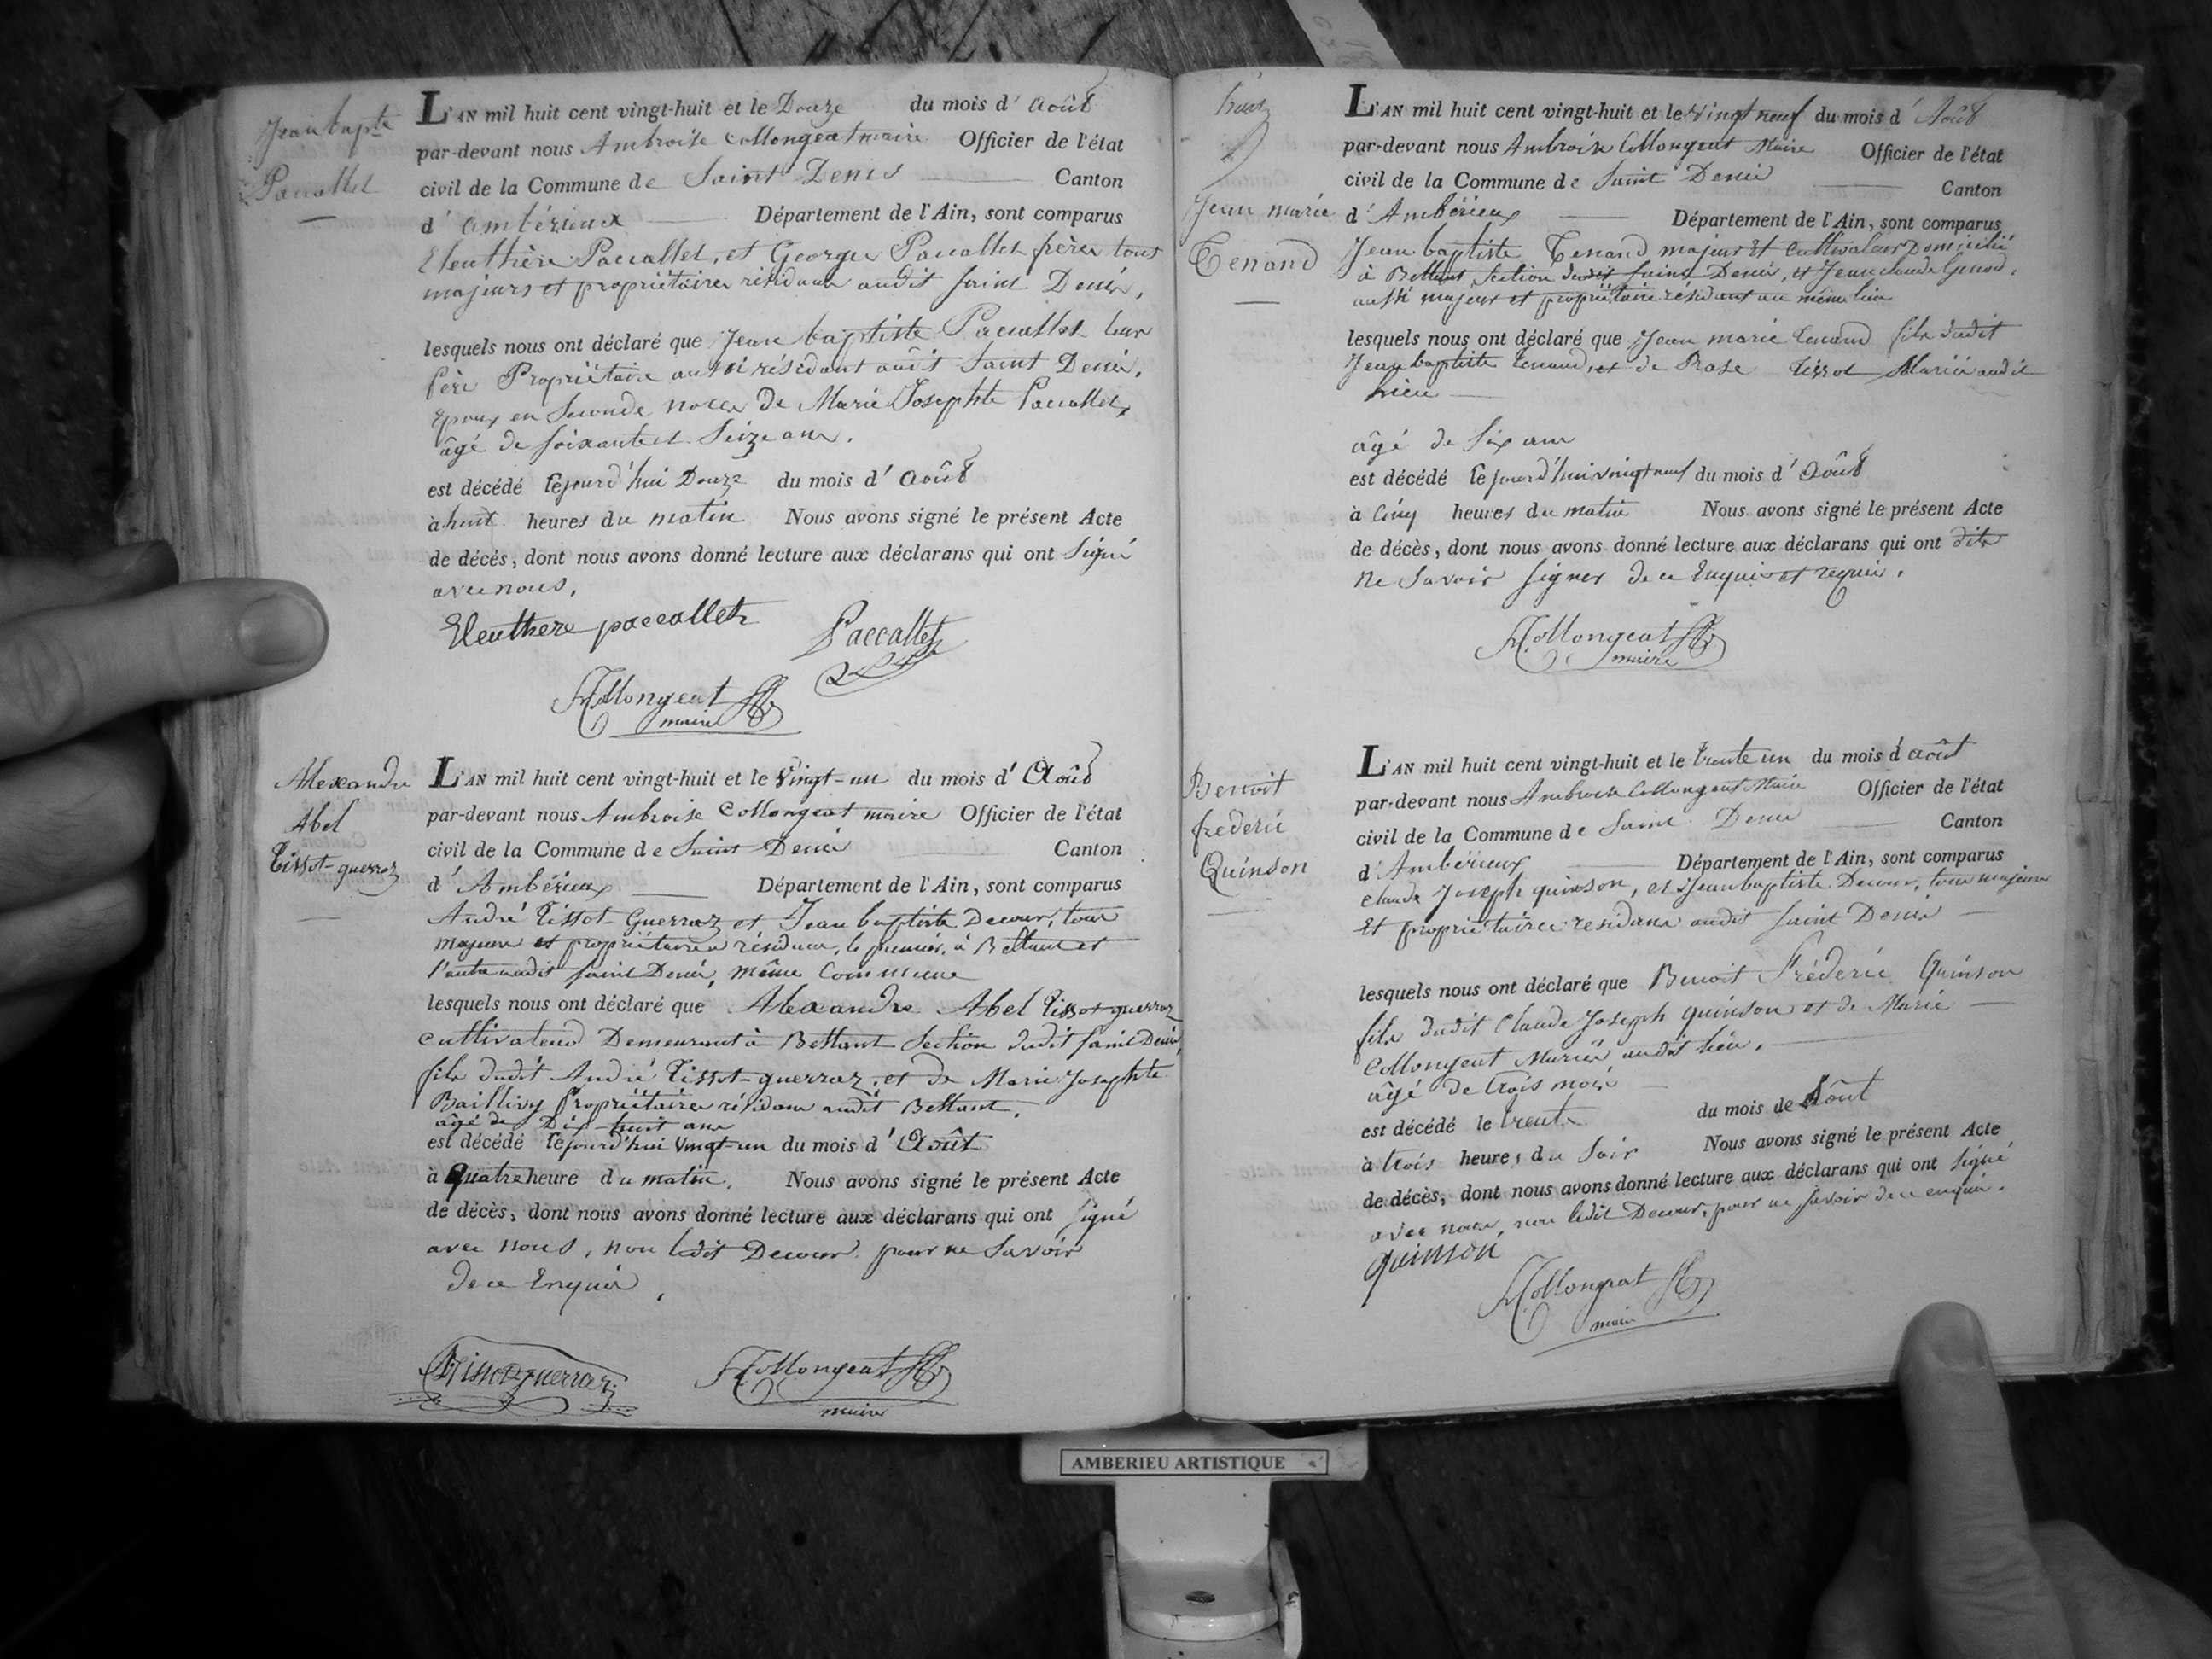 Jean bapte
Paccallet
L'AN mil huit cent vingt-huit et le Douze du mois d' Août
par-devant nous Ambroise Collongeat maire Officier de l'état
civil de la Commune de Saint Denis Canton
d' ambérieux Département de l'Ain, sont comparus
Eleuthère Paccallet, et George Paccallet frères tous
majeurs et propriétaires résidans audit saint Denis,
lesquels nous ont déclaré que Jean baptiste Paccallet leur
père Propriétaire aussi résidant audit Saint Denis,
Epoux en Seconde noces de Marie Josephte Paccallet,
âgé de soixante et Seize ans.
est décédé cejourd'hui Douze du mois d' Août
à huit heures du matin Nous avons signé le présent Acte
de décès, dont nous avons donné lecture aux déclarans qui ont Signé
avec nous.
Eleuthere paccallet Paccallet
Collongeat
maire
Alexandre
Abel
Tissot-guerraz
L'AN mil huit cent vingt-huit et le Vingt-un du mois d' Août
par-devant nous Ambroise Collongeat maire Officier de l'état
civil de la Commune de Saint Denis Canton
d' Ambérieux Département de l'Ain, sont comparus
André Tissot-Guerraz et Jean baptiste Decour, tous
majeurs et propriétaires résidans, le premier, à Bettant et
l'autre audit saint Denis, même Commune
lesquels nous ont déclaré que Alexandre Abel Tissot-guerraz
cultivateur Demeurant à Bettant Section dudit saint Denis,
fils dudit André Tissot-guerraz, et de Marie Josephte
Baillivy Propriétaires résidans audit Bettant,
âgé de Dix-huit ans
est décédé cejourd'hui vingt-un du mois d' Août
à Quatre heure du matin. Nous avons signé le présent Acte
de décès, dont nous avons donné lecture aux déclarans qui ont signé
avec nous, non ledit Decour pour ne Savoir
de ce Enquis.
Tissot guerraz Collongeat
maire
Jean marie
Tenand
L'AN mil huit cent vingt-huit et le vingt neuf du mois d' Août
par-devant nous Ambroise Collongeat Maire Officier de l'état
civil de la Commune de Saint Denis Canton
d' Ambérieux Département de l'Ain, sont comparus
Jean baptiste Tenand majeur Et Cultivateur Domicilié
à Bettant, Section dudit saint Denis, et Jean claude
aussi majeur et propriétaire résidant au même lieu
lesquels nous ont déclaré que Jean marie Tenand fils dudit
Jean baptiste Tenand, et de Rose Tissot Mariés audit
lieu
âgé de Six ans
est décédé cejourd'hui vingt neuf du mois d' Août
à Cinq heures du matin Nous avons signé le présent Acte
de décès, dont nous avons donné lecture aux déclarans qui ont dits
ne Savoir signer de ce Enquis et requis.
Collongeat
maire
Benoit
frederic
Quinson
L'AN mil huit cent vingt-huit et le trente un du mois d' août
par-devant nous Ambroise Collongeat Maire Officier de l'état
civil de la Commune de Saint Denis Canton
d' Ambérieux Département de l'Ain, sont comparus
claude Joseph quinson, et Jean baptiste Decour, tous majeurs
Et propriétaires residans audit saint Denis
lesquels nous ont déclaré que Benoit Fréderic Quinson
fils dudit Claude Joseph quinson et de Marie
Collongeat Mariés audit lieu.
âgé de trois mois
est décédé le trente du mois de Août
à trois heures du Soir Nous avons signé le présent Acte
de décès, dont nous avons donné lecture aux déclarans qui ont signé
avec nous, non ledit Decour, pour ne savoir de ce enquis.
quinson
Collongeat
maire
AMBERIEU ARTISTIQUE